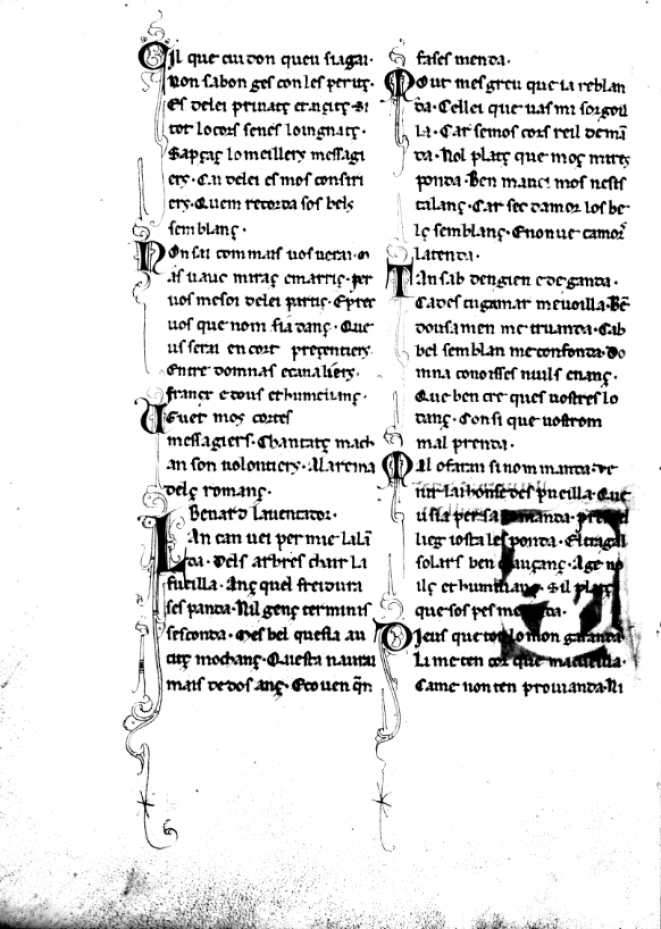 Cil que cuidon queu siagai·
Non sabon ges con les peritz·
Es delei privatz etaczitz· Si
tot locors senes loingnatz·
Sapchatz lo meillers messagi
ers· Cai delei es mos consiri
ers· Quem recorda sos bels
semblanç·
Non sai com mais vos veirai·
vos mesoi delei partiç· Eprec
vos que nom sia danç· Que
us serai en cort preçentiers·
Entre domnas ecavaliers·
françs edous ethumelianç·
Uguet mos cortes
messagiers· Chantatz mach
an son volontiers· Alareina
dels romanç·
Benard Laventador·
Lan can vei per mie lalã
da· Dels arbres chair la
fueilla· Anç quel freidura
ses panda· Nil genç terminis
sesconda· Mes bel questa au
citç mochanç· Questa nautai
mais dedos anç· Eco ven qn
fases menda·
Mout mes greu que ia reblan
da· Cellei que vas mi sorgoil
la· Car semos cors reil demã
da· Nol platç que moç mi res
ponda· Ben mauci mos nesis
talanç· Car sec damor los be
lç semblanç· Enon ve camor
latenda·
Tan sab dengien ede ganda·
Cades cugamar mevoilla· Bẽ
dousamen me truanda· Cab
bel semblan me confonda· Do
mna conoisses nuils enanç·
Que ben cre ques vostres lo
danç· Con si que vostrom
mal prenda·
Mal o faran si nom manda·
solars ben
ilç ethumilianç· Sil platç
que sos pes
Dieus que tot lo mon garanda
Li me ten cor que macueilla·
Came non ten proviianda· Ni